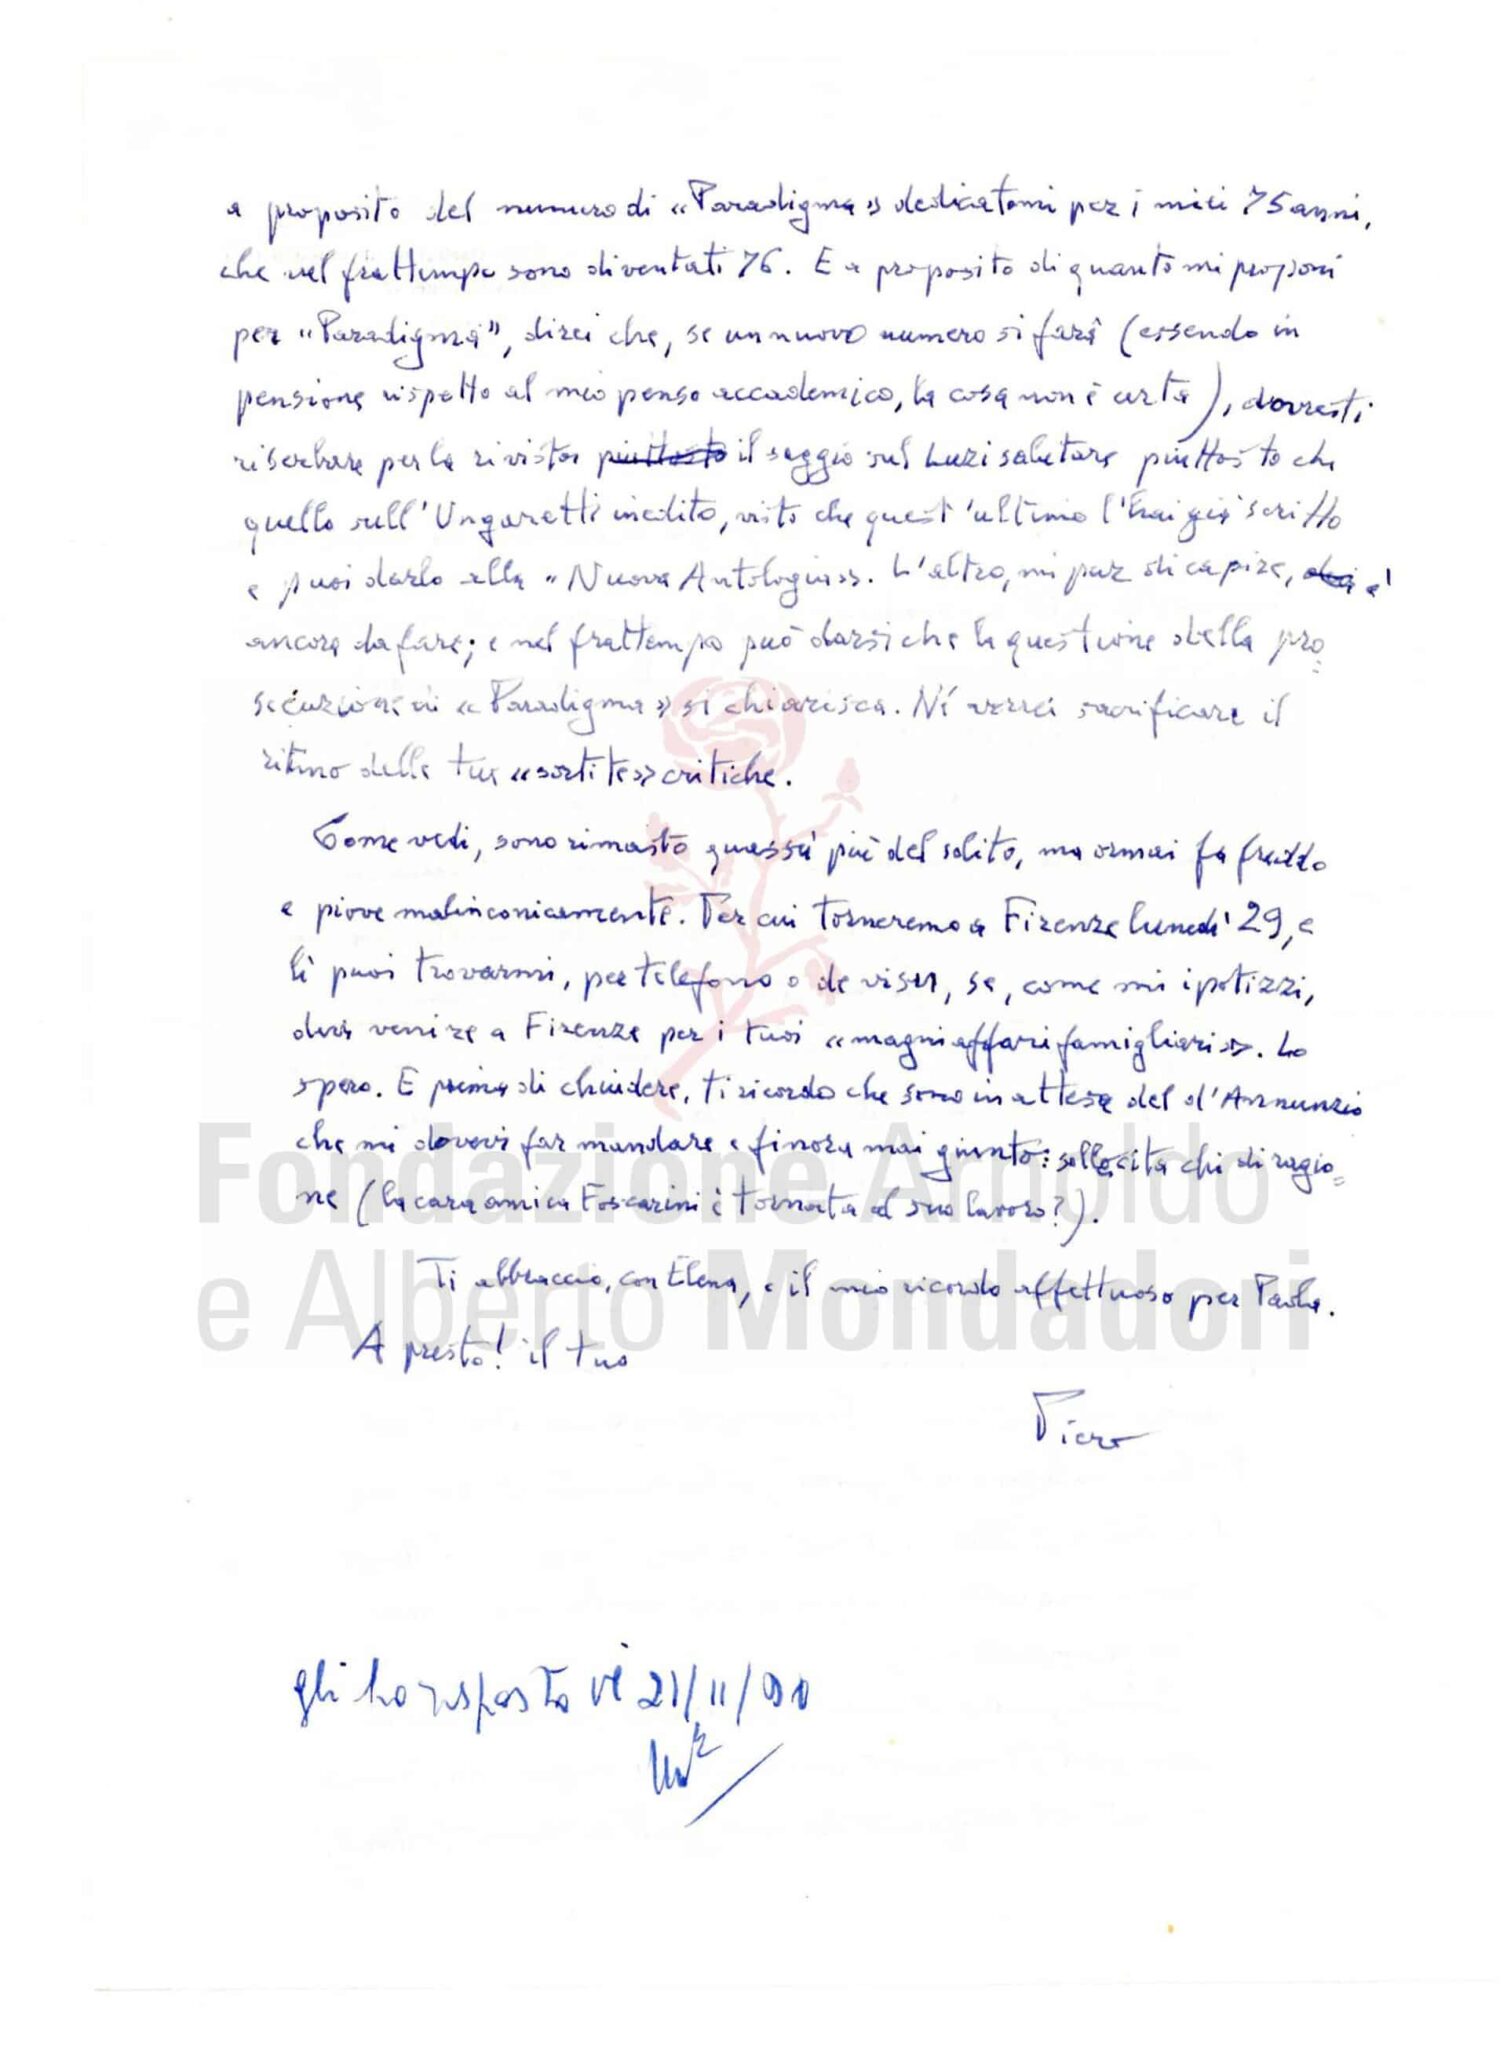 a proposito del numero di «Paradigma» dedicatomi per i miei 75 anni,
che nel frattempo sono diventati 76. E a proposito di quanto mi proponi
per «Paradigma», direi che, se un nuovo numero si farà (essendo in
pensione rispetto al mio penso accademico, la cosa non è certa), dovresti
riserbare per la rivista piuttosto il saggio sul Luzi salutare piuttosto che
quello sull'Ungaretti inedito, visto che quest'ultimo l'hai già scritto
e puoi darlo alla «Nuova Antologia». L'altro, mi par di capire, è
ancora da fare; e nel frattempo può darsi che la questione della pro=
secuzione di «Paradigma» si chiarisca. Né vorrei sacrificare il
ritmo delle tue «sortite» critiche.
Come vedi, sono rimasto quassù più del solito, ma ormai fa freddo
e piove malinconicamente. Per cui torneremo a Firenze lunedì 29, e
lì puoi trovarmi, per telefono o de visu, se, come mi ipotizzi,
devi venire a Firenze per i tuoi «magni affari famigliari». Lo
spero. E prima di chiudere, ti ricordo che sono in attesa del d'Annunzio
che mi dovevi far mandare e finora mai giunto: sollecita chi di ragio=
ne (la cara amica Foscarini è tornata al suo lavoro?).
Ti abbraccio, con Elena, e il mio ricordo affettuoso per Paola.
A presto! il tuo
Piero
gli ho risposto il 21/11/90
Fondazione Arnoldo
e Alberto Mondadori